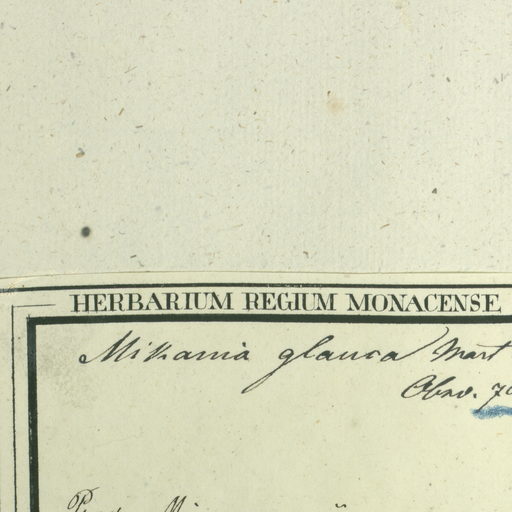 HERBARIUM REGIUM MONACENSE
Mikania glauca Mart
Obsv.